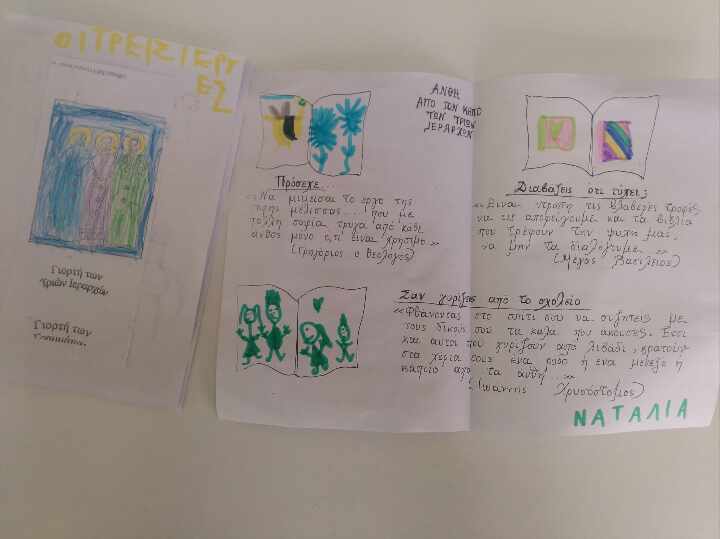 ΟΙ ΤΡΕΙΣ ΙΕΡΓ
ΕΣ
Γιορτή των
Τριών Ιεραρχών
Γιορτή των
ΑΝΘΗ
ΑΠΟ ΤΟΝ ΚΗΠΟ
ΤΩΝ ΤΡΙΩΝ
ΙΕΡΑΡΧΩΝ
Πρόσεχε...
«Να μιμείσαι το έργο της
μέλισσας... που με
πολλή σοφία τρυγά από κάθε
άνθος μόνο ό,τι είναι χρήσιμο»
(Γρηγόριος ο Θεολόγος)
Διαβάζεις ότι τύχει;
«Είναι ντροπή τις βλαβερές τροφές
να τις αποφεύγουμε και τα βιβλία
που τρέφουν την ψυχή μας,
να μην τα διαλέγουμε»
(Μέγας Βασίλειος)
Σαν γυρίζεις από το σχολείο
«Φθάνοντας στο σπίτι σου να συζητείς με
τους δικούς σου τα καλά που άκουσες. Έτσι
και αυτοί που γυρίζουν από λιβάδι, κρατούν
στα χέρια τους ένα ρόδο ή ένα μενεξέ ή
κάποιο από τα άνθη...»
(Ιωάννης Χρυσόστομος)
ΝΑΤΑΛΙΑ